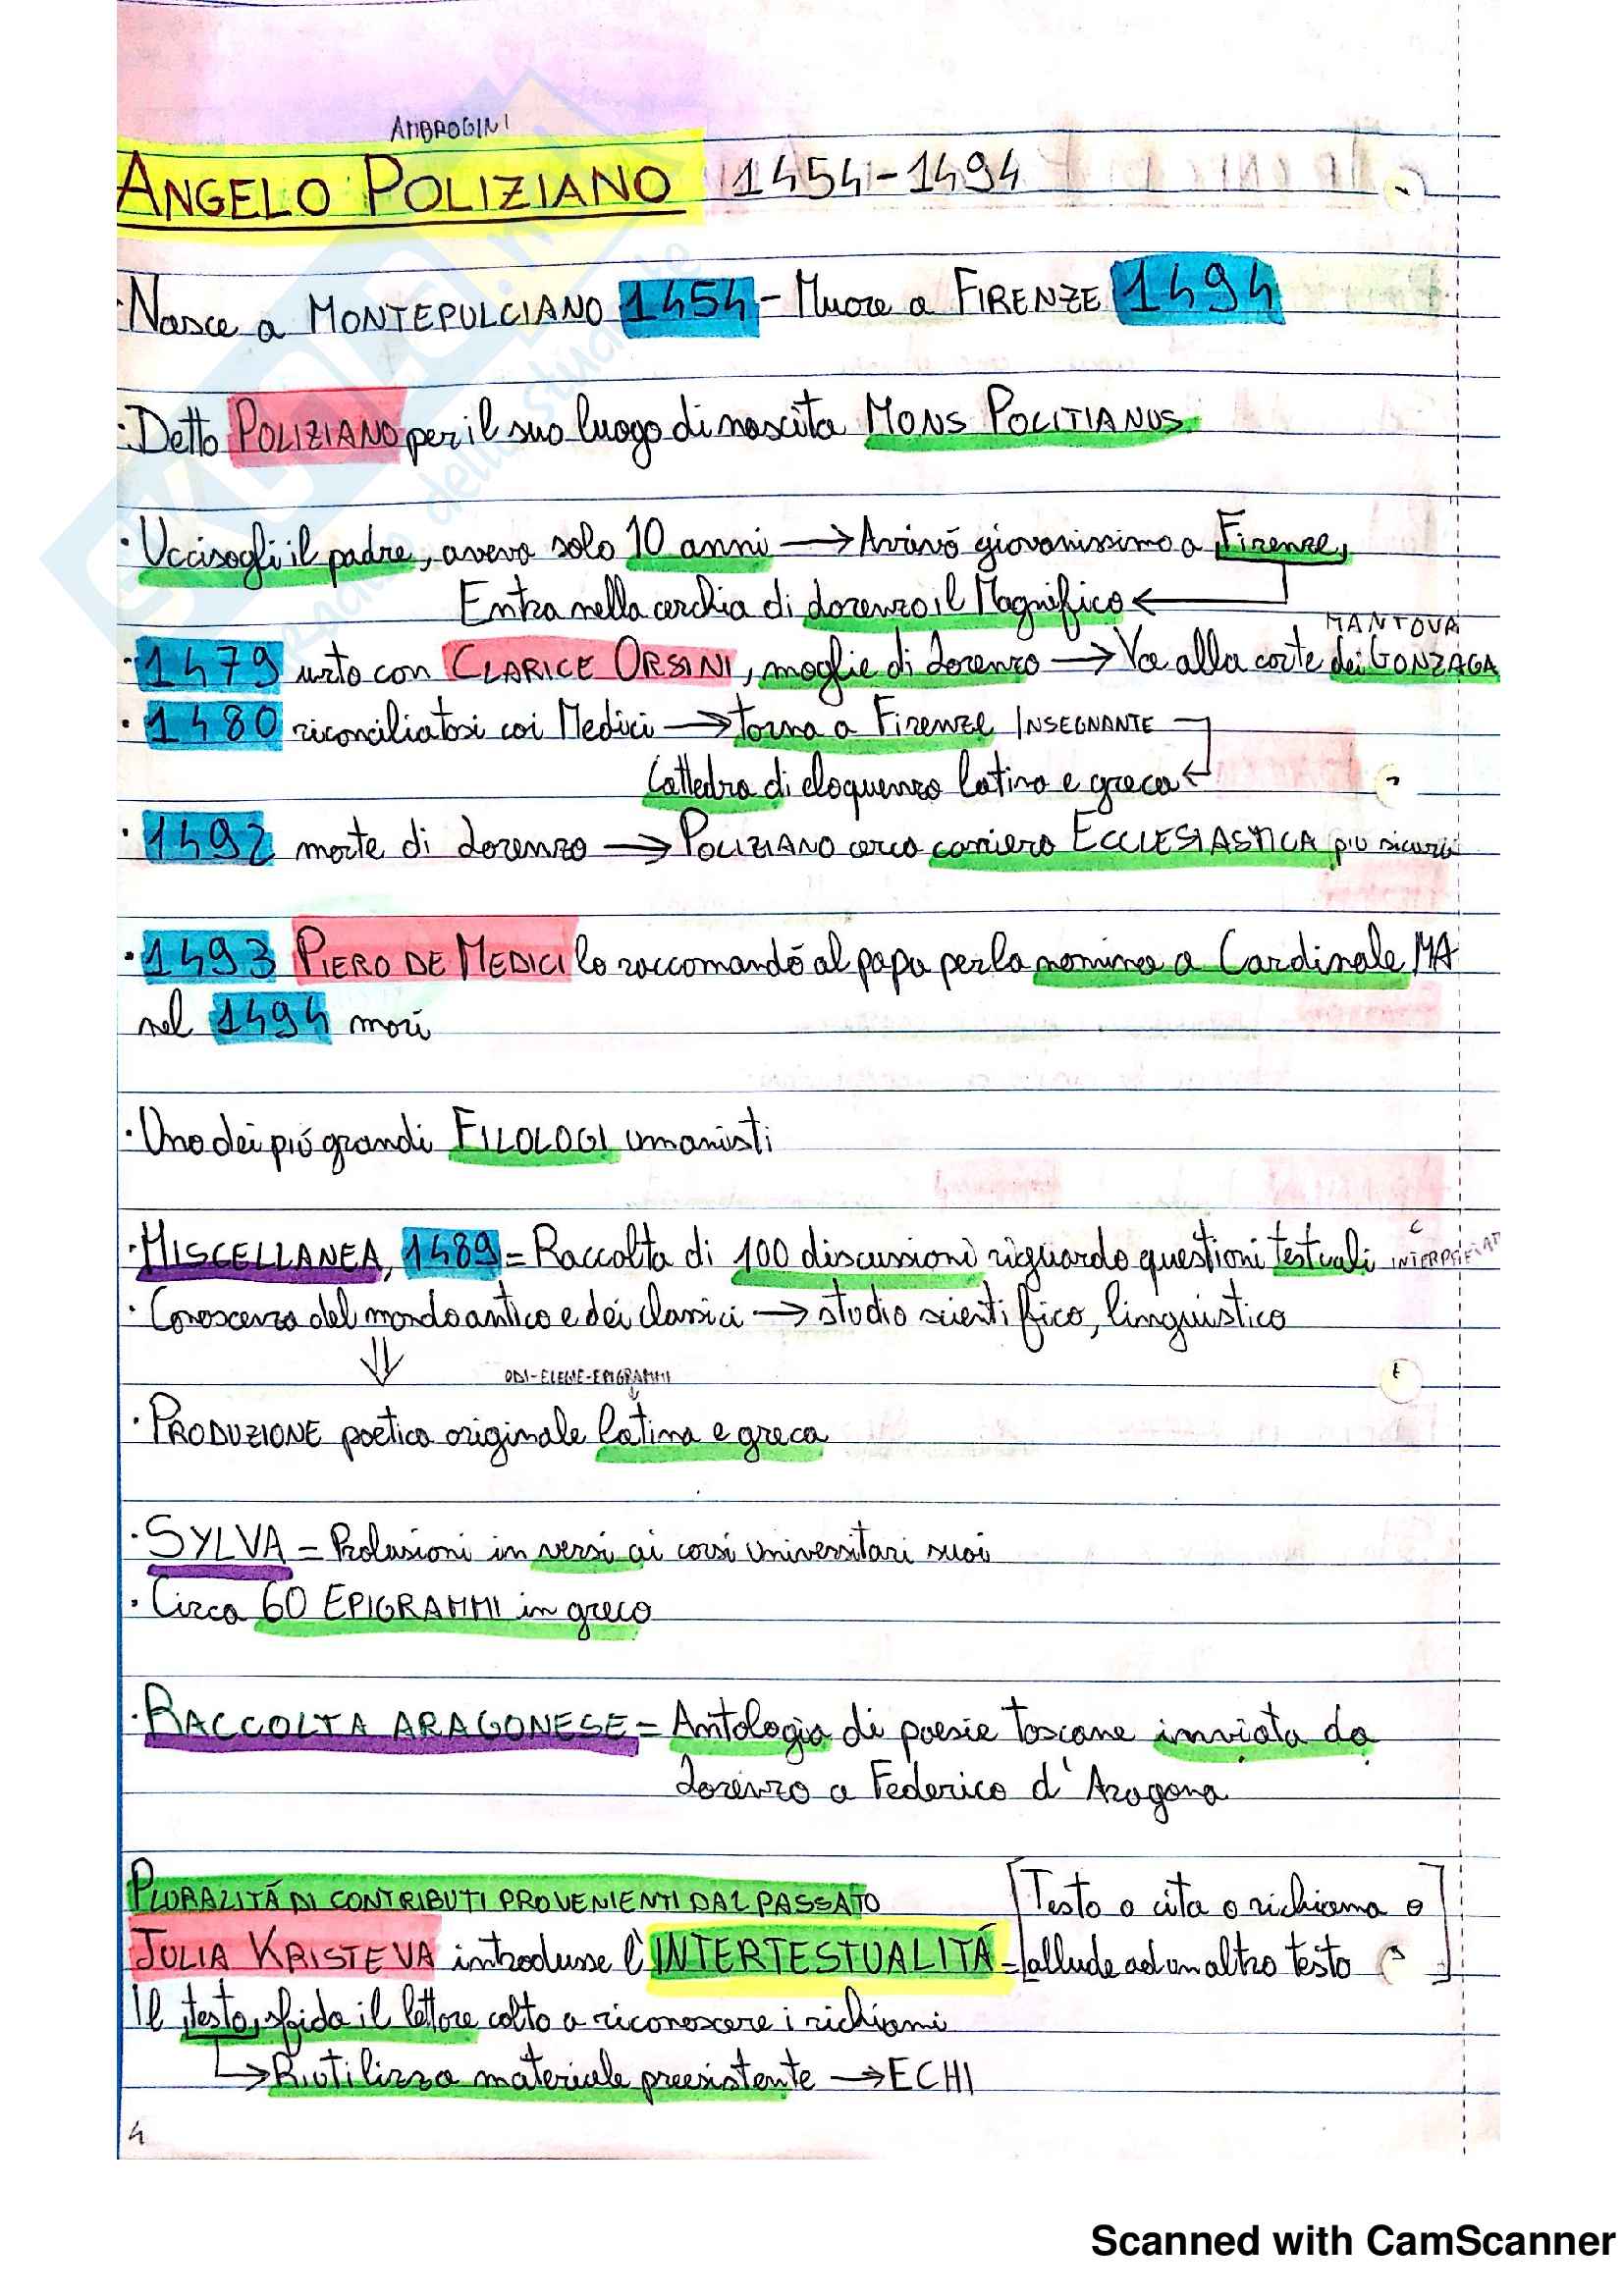 AMBROGINI
ANGELO POLIZIANO 1454-1494
·Nasce a MONTEPULCIANO 1454 - Muore a FIRENZE 1494
·Detto POLIZIANO per il suo luogo di nascita MONS POLITIANUS.
·Uccisogli il padre, aveva solo 10 anni → Arrivò giovanissimo a Firenze,
Entra nella cerchia di Lorenzo il Magnifico ←
MANTOVA
·1479 urto con CLARICE ORSINI, moglie di Lorenzo → Va alla corte dei GONZAGA
·1480 riconciliatosi coi Medici → torna a Firenze INSEGNANTE
Cattedra di eloquenza latina e greca ←
·1492 morte di Lorenzo → POLIZIANO cerca carriera ECCLESIASTICA più sicura
·1493 PIERO DE MEDICI lo raccomandó al papa per la nomina a Cardinale MA
nel 1494 morì
·Uno dei piú grandi FILOLOGI umanisti
·MISCELLANEA, 1489 = Raccolta di 100 discussioni riguardo questioni testuali
·Conoscenza del mondo antico e dei classici → studio scientifico, linguistico
⇓ ODI-ELEGIE-EPIGRAMMI
·PRODUZIONE poetica originale latina e greca
·SYLVA = Prolusioni in versi ai corsi universitari suoi
·Circa 60 EPIGRAMMI in greco
·RACCOLTA ARAGONESE = Antologia di poesie toscane inviata da
Lorenzo a Federico d'Aragona
PLURALITÁ DI CONTRIBUTI PROVENIENTI DAL PASSATO [Testo o cita o richiama o
JULIA KRISTEVA introdusse l'INTERTESTUALITÁ = allude ad un altro testo]
Il testo sfida il lettore colto a riconoscere i richiami
→ Riutilizza materiale preesistente → ECHI
4
Scanned with CamScanner